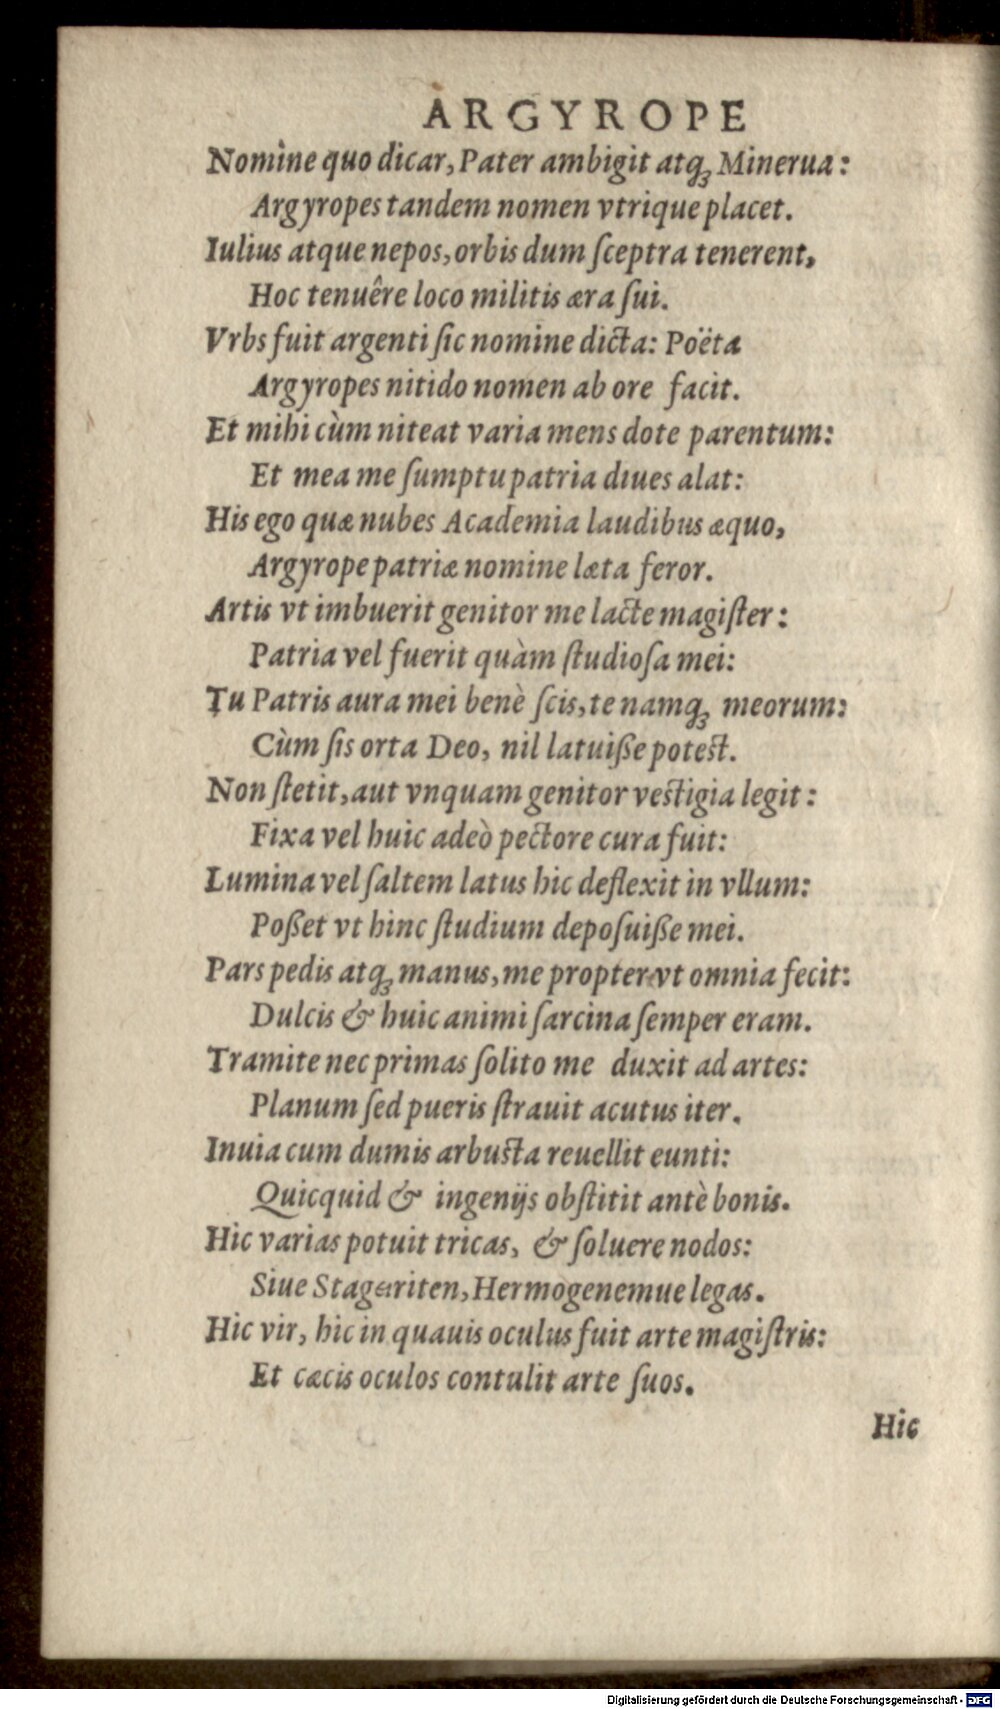 ARGYROPE
Nomine quo dicar, Pater ambigit atqꝫ Minerua:
Argyropes tandem nomen vtrique placet.
Iulius atque nepos, orbis dum ſceptra tenerent,
Hoc tenuêre loco militis æra ſui.
Vrbs fuit argenti ſic nomine dicta: Poëta
Argyropes nitido nomen ab ore facit.
Et mihi cùm niteat varia mens dote parentum:
Et mea me ſumptu patria diues alat:
His ego quæ nubes Academia laudibus æquo,
Argyrope patriæ nomine læta feror.
Artis vt imbuerit genitor me lacte magiſter:
Patria vel fuerit quàm ſtudioſa mei:
Tu Patris aura mei benè ſcis, te namqꝫ meorum:
Cùm ſis orta Deo, nil latuiße poteſt.
Non ſtetit, aut vnquam genitor veſtigia legit:
Fixa vel huic adeò pectore cura fuit:
Lumina vel ſaltem latus hic deflexit in vllum:
Poßet vt hinc ſtudium depoſuiße mei.
Pars pedis atqꝫ manus, me propter vt omnia fecit:
Dulcis & huic animi ſarcina ſemper eram.
Tramite nec primas ſolito me duxit ad artes:
Planum ſed pueris ſtrauit acutus iter.
Inuia cum dumis arbuſta reuellit eunti:
Quicquid & ingenijs obſtitit antè bonis.
Hic varias potuit tricas, & ſoluere nodos:
Siue Stagæriten, Hermogenemue legas.
Hic vir, hic in quauis oculus fuit arte magiſtris:
Et cæcis oculos contulit arte ſuos.
Hic
Digitalisierung gefördert durch die Deutsche Forschungsgemeinschaft - DFG